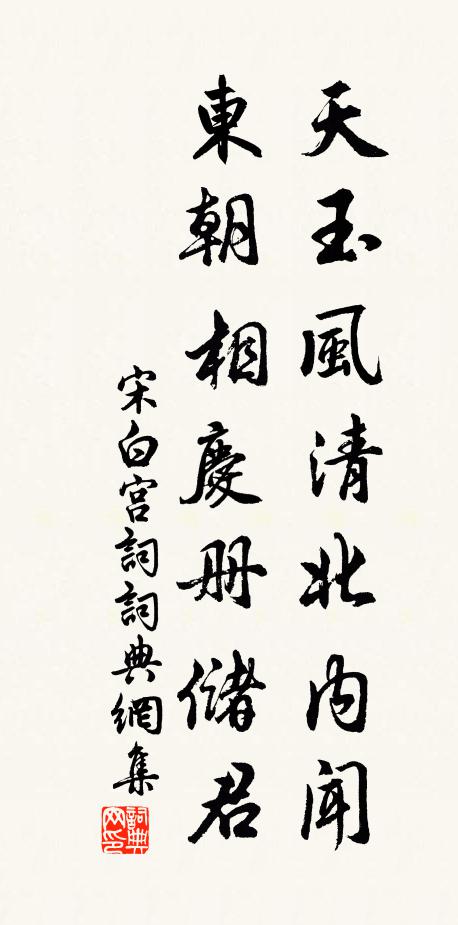 天玉風清北内聞
東朝相慶册儲君
宋白宫詞詞典網集
詞典网印